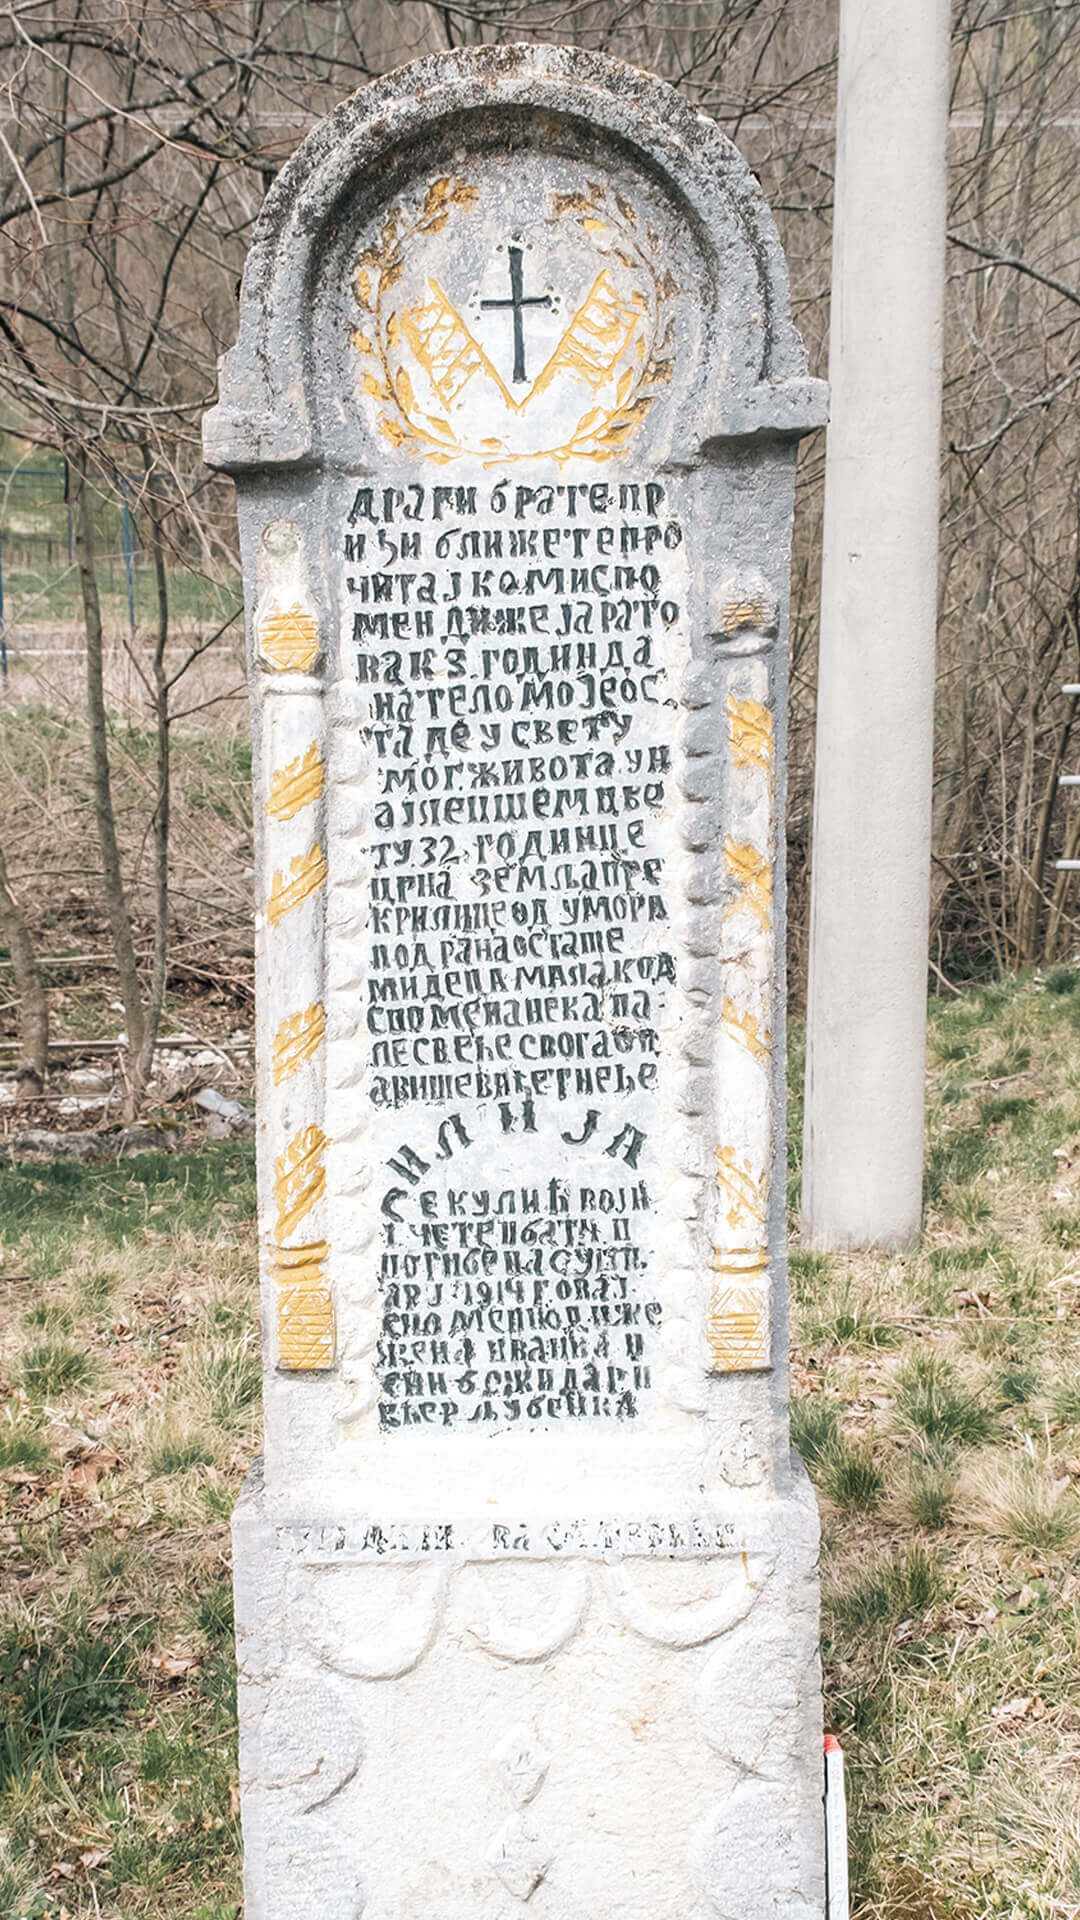 ДРАГИ БРАТЕ ПР
ИЂИ БЛИЖЕ ТЕ ПРО
ЧИТАЈ КОМИ СПО
МЕН ДИЖЕ ЈА РАТО
ВАК 3. ГОДИН ДА
НА ТЕЛО МОЈЕ ОС
ТАДЕ У СВЕТУ
МОГ. ЖИВОТА. УН
АЈЛЕПШЕМ ЦВЕ
ТУ. 32. ГОДИНЦЕ
ЦРНА ЗЕМЉА ПРЕ
КРИЛИЦЕ ОД УМОРА
ПОД РАНА ОСТАШЕ
МИ ДЕЦА МАЛА КОД
СПОМЕНА НЕКА ПА-
ЛЕ СВЕЋЕ СВОГА ОЦ
А ВИШЕ ВИЂЕТ НЕЋЕ
ИЛИЈА
СЕКУЛИЋ ВОЈН
1. ЧЕТЕ
ПОГИБЕ НА
АРЈ 1914 Г. ОВАЈ.
СПОМЕН ДИЖЕ
ЖЕНА ИВАНКА И
СИН БОЖИДАР И
ЋЕР ЉУБЕНКА